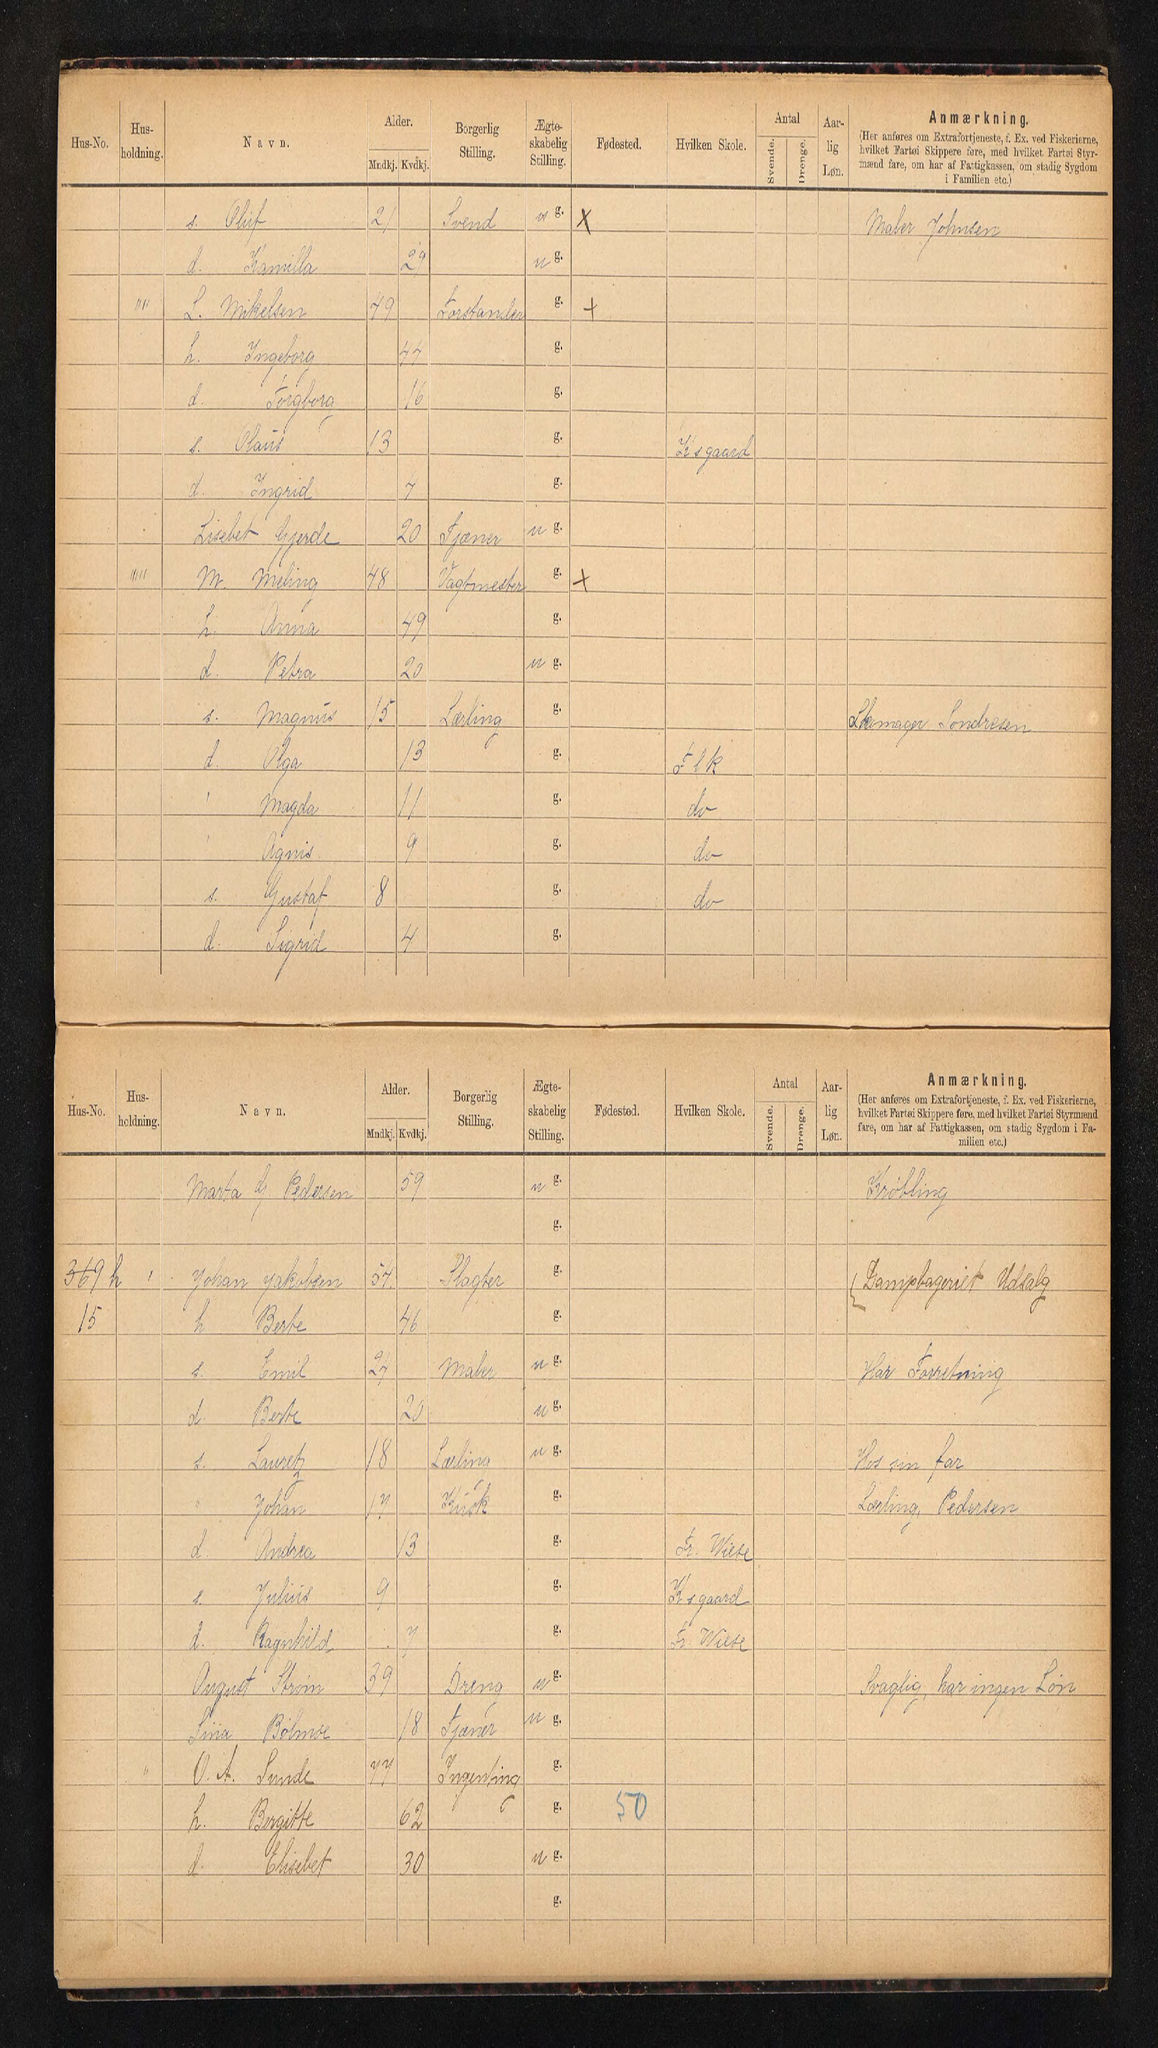 Hus-No. Hus-holdning. Navn. Alder. Mndkj. Kvdkj. Borgerlig Stilling. Ægte-skabelig Stilling. Fødested. Hvilken Skole. Antal Svende. Drenge. Aar-lig Løn. Anmærkning.
(Her anføres om Extrafortjeneste, f. Ex. ved Fiskerierne, hvilket Fartøi Skippere føre, med hvilket Fartøi Styr-mænd fare, om har af Fattigkassen, om stadig Sygdom i Familien etc.)
s. Oluf 21 Svend u g. X Maler Johnsen
d. Kamilla 29 u g.
"" L. Mikelsen 49 Forstander g. +
h. Ingeborg 47 g.
d. Torgborg 16 g.
s. Olaus 13 g. K'sgaard
d. Ingrid 7 g.
Lisebet Gjerde 20 Tjæner u g.
""" M. Meling 48 Vagtmester g. +
h. Anna 49 g.
d. Petra 20 u g.
s. Magnus 15 Lærling g. Skomager Sondresen
d. Olga 13 g. Flk
" Magda 11 g. do
" Agnis 9 g. do
s. Gustaf 8 g. do
d. Sigrid 4 g.
Hus-No. Hus-holdning. Navn. Alder. Mndkj. Kvdkj. Borgerlig Stilling. Ægte-skabelig Stilling. Fødested. Hvilken Skole. Antal Svende. Drenge. Aar-lig Løn. Anmærkning.
(Her anføres om Extrafortjeneste, f. Ex. ved Fiskerierne, hvilket Fartøi Skippere føre, med hvilket Fartøi Styrmænd fare, om har af Fattigkassen, om stadig Sygdom i Fa-milien etc.)
Marta G Pedersen 59 u g. Krøbling
g.
369 h ' Johan Jakobsen 57 Slagter g. Dampbageriet Udsalg
15 h Berte 46 g.
s. Emil 27 Maler u g. Har Forretning
d. Berte 20 u g.
s. Lauretz 18 Lærling u g. Hos sin far
" Johan 17 Kusk g. Lærling, Pedersen
d. Andrea 13 g. Fr. Wiese
s. Julius 9 g. K'sgaard
d. Ragnhild 7 g. Fr. Wiese
August Strøm 39 Dreng u g. Svaglig, har ingen Løn
Sina Bølmoe 18 Tjæner u g.
" O. A. Sunde 77 Ingenting g.
h. Bergitte 62 g. 50
d. Elisebet 30 u g.
g.